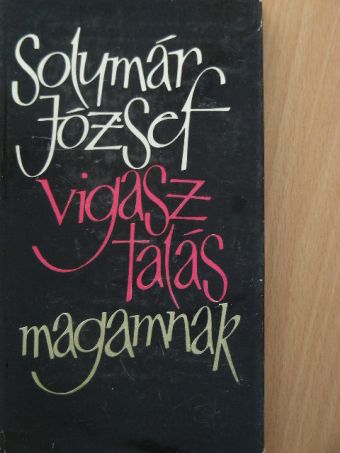 Solymár
József
vigasz
talás
magamnak